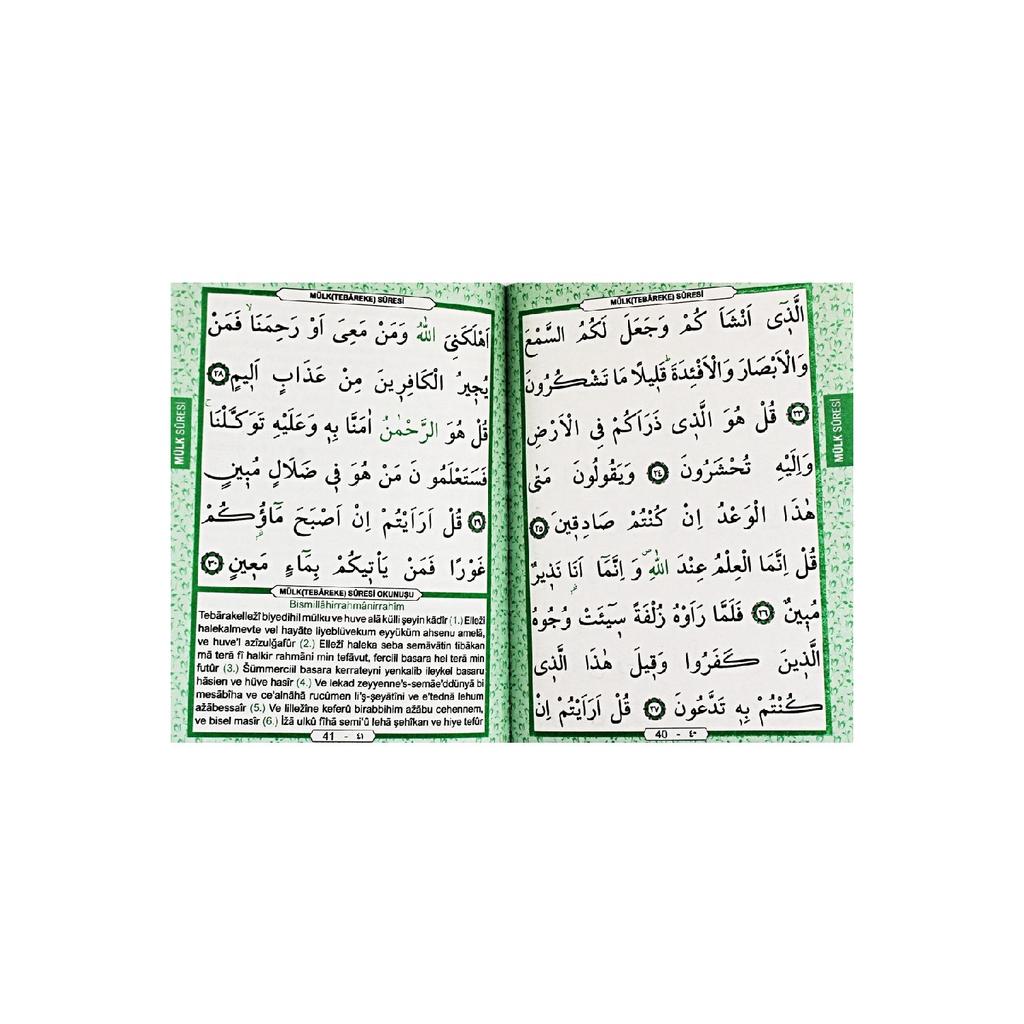 MÜLK(TEBÂREKE) SÛRESİ
اَلَّذ۪ٓى اَنْشَاَ كُمْ وَجَعَلَ لَكُمُ السَّمْعَ
وَالْاَبْصَارَ وَالْاَفْئِدَةَ قَلِيلًا مَا تَشْكُرُونَ
﴿٢٣﴾ قُلْ هُوَ الَّذ۪ى ذَرَاَكُمْ فِى الْاَرْضِ
وَاِلَيْهِ تُحْشَرُونَ ﴿٢٤﴾ وَيَقُولُونَ مَتٰى
هٰذَا الْوَعْدُ اِنْ كُنْتُمْ صَادِق۪ينَ ﴿٢٥﴾
قُلْ اِنَّمَا الْعِلْمُ عِنْدَ اللّٰهِ وَ اِنَّمَٓا اَنَا نَذ۪يرٌ
مُب۪ينٌ ﴿٢٦﴾ فَلَمَّا رَاَوْهُ زُلْفَةً س۪ٓيئَتْ وُجُوهُ
الَّذ۪ينَ كَفَرُوا وَق۪يلَ هٰذَا الَّذ۪ى
كُنْتُمْ بِه۪ تَدَّعُونَ ﴿٢٧﴾ قُلْ اَرَاَيْتُمْ اِنْ
40 - ٤٠
MÜLK SÛRESİ
MÜLK(TEBÂREKE) SÛRESİ
اَهْلَكَنِىَ اللّٰهُ وَمَنْ مَعِىَ اَوْ رَحِمَنَاۙ فَمَنْ
يُج۪يرُ الْكَافِر۪ينَ مِنْ عَذَابٍ اَل۪يمٍ ﴿٢٨﴾
قُلْ هُوَ الرَّحْمٰنُ اٰمَنَّا بِه۪ وَعَلَيْهِ تَوَكَّلْنَاۚ
فَسَتَعْلَمُو نَ مَنْ هُوَ ف۪ى ضَلَالٍ مُب۪ينٍ
﴿٢٩﴾ قُلْ اَرَاَيْتُمْ اِنْ اَصْبَحَ مَٓاؤُكُمْ
غَوْرًا فَمَنْ يَاْت۪يكُمْ بِمَٓاءٍ مَع۪ينٍ ﴿٣٠﴾
MÜLK(TEBÂREKE) SÛRESİ OKUNUŞU
Bismillâhirrahmânirrahîm
Tebârakellezî biyedihil mülku ve huve alâ külli şeyin kâdîr (1.) Ellezî
halekalmevte vel hayâte liyeblüvekum eyyüküm ahsenu amelâ,
ve huve'l azîzulğafûr (2.) Ellezî haleka seba semâvâtin tibâkan
mâ terâ fî halkir rahmâni min tefâvut, ferciil basara hel terâ min
futûr (3.) Sümmerciil basara kerrateyni yenkalib ileykel basaru
hâsien ve hüve hasîr (4.) Ve lekad zeyyenne's-semâe'ddünyâ bi
mesâbîha ve ce'alnâhâ rucûmen li'ş-şeyâtîni ve e'tednâ lehum
azâbessaîr (5.) Ve lillezîne keferû birabbihim azâbu cehennem,
ve bisel masîr (6.) İzâ ulkû fîhâ semi'û lehâ şehîkan ve hiye tefûr
41 - ٤١
MÜLK SÛRESİ